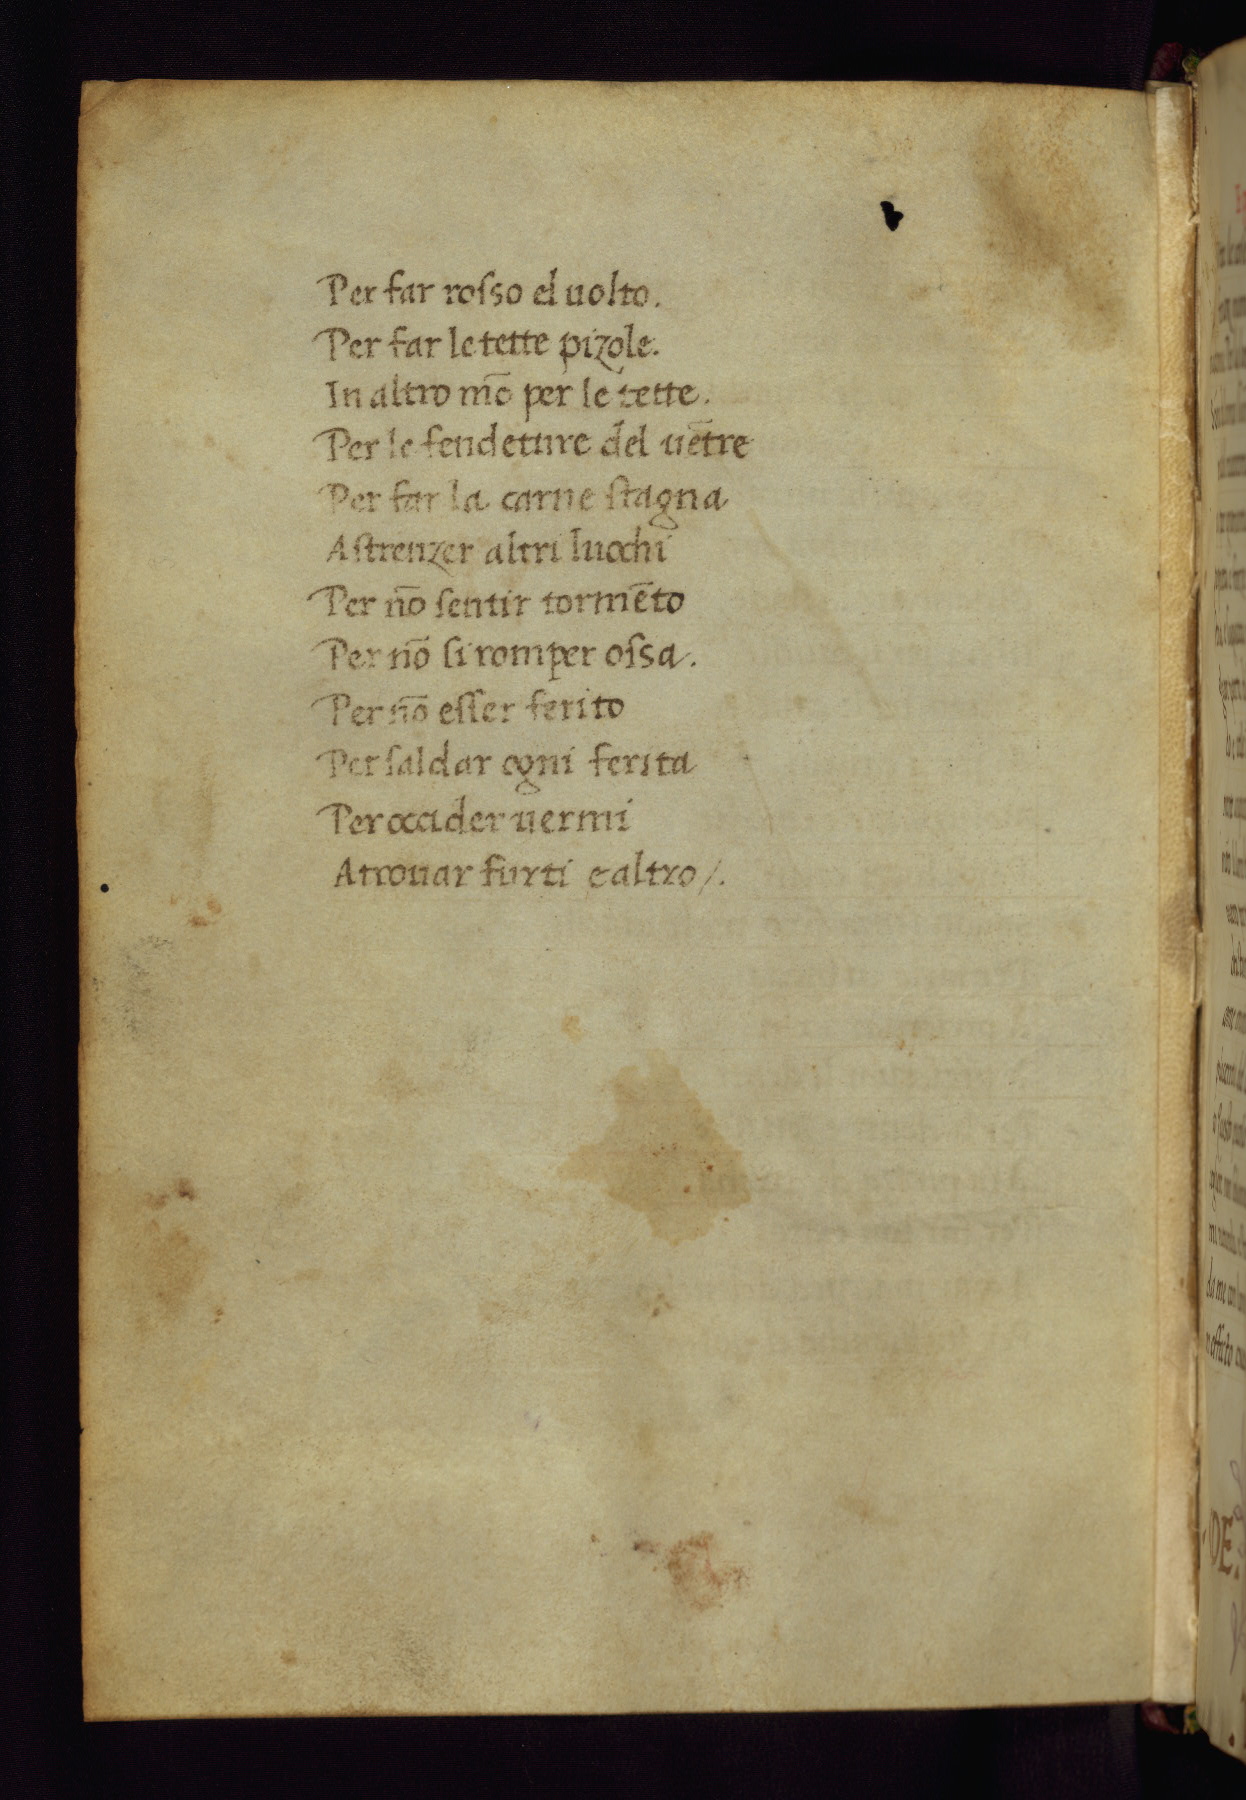 Per far roſso el uolto.
Per far le tette pizole.
In altro mō per le tette.
Per le fendeture del uētre
Per far la carne ſtagna
Aſtrenzer altri luochi
Per nō ſentir tormēto
Per nō ſi romper oſsa.
Per nō eſſer ferito
Per ſaldar ogni ferita
Per occider uermi
Atrouar furti e altro /.